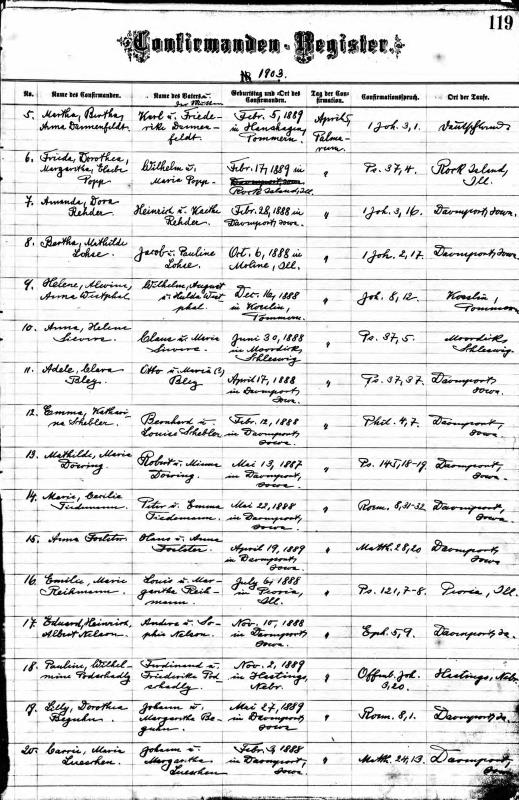 119
Confirmanden-Register.
1903.
No. Name des Confirmanden. Name des Vaters u. der Mutter Geburtstag und Ort des Confirmanden. Tag der Confirmation. Confirmationsspruch. Ort der Taufe.
5. Martha, Bertha, Anna Dannenfeldt. Karl u. Friederike Dannenfeldt. Febr. 5, 1889 in Hanshagen, Pommern. April 5, Palmarum. 1 Joh. 3, 1. Deutschland
6. Frieda, Dorothea, Margaretha, Popp Wilhelm u. Maria Popp. Febr. 17, 1889 in Davenport, Iowa Rock Island, Ill. " Ps. 37, 4. Rock Island, Ill.
7. Amanda, Dora Rehder Heinrich u. Kaethe Rehder. Febr. 28, 1888 in Davenport, Iowa. " 1 Joh. 3, 16. Davenport, Iowa.
8. Bertha, Mathilde Lohse. Jacob u. Pauline Lohse. Oct. 6, 1888 in Moline, Ill. " 1 Joh. 2, 17. Davenport, Iowa.
9. Helene, Alwine, Anna Westphal Wilhelm, August u. Hulda Westphal. Dec. 16, 1888 in Koeslin, Pommern. " Joh. 8, 12. Koeslin, Pommern
10. Anna, Helene Sievers. Claus u. Maria Sievers. Juni 30, 1888 in Schleswig " Ps. 37, 5. Schleswig.
11. Adele, Clara Bley. Otto u. Maria (?) Bley April 17, 1888 in Davenport, Iowa. " Ps. 37, 37. Davenport, Iowa.
12. Emma, Katharina Stebler. Bernhard u. Louise Stebler Febr. 12, 1888 in Davenport, Iowa. " Phil. 4, 7. Davenport, Iowa.
13. Mathilde, Maria Döring. Robert u. Minna Döring. Mai 13, 1887 in Davenport, Iowa " Ps. 145, 18-19. Davenport, Iowa.
14. Maria, Cecilia Fiedemann. Peter u. Emma Fiedemann. Mai 22, 1888 in Davenport, Iowa. " Roem. 8, 31-32. Davenport, Iowa.
15. Anna Foelster. Hans u. Anna Foelster. April 19, 1889 in Davenport, Iowa. " Matth. 28, 20 Davenport, Iowa
16. Emilie, Marie Reikmann. Louis u. Margaretha Reikmann. July 6, 1888 in Peoria, Ill. " Ps. 121, 7-8. Peoria, Ill.
17. Eduard, Heinrich, Albert Nelson. Andrew u. Sophie Nelson. Nov. 10, 1888 in Davenport, Iowa. " Eph. 5, 9. Davenport, Ia.
18. Pauline, Wilhelmine Podschadly Ferdinand u. Friederike Podschadly. Nov. 2, 1889 in Hastings, Nebr. " Offenb. Joh. 3, 20. Hastings, Nebr.
19. Lilly, Dorothea Beguhn. Johann u. Margaretha Beguhn. Mai 27, 1889 in Davenport, Iowa " Roem. 8, 1. Davenport, Ia.
20. Carrie, Maria Lueschen. Johann u. Margaretha Lueschen Febr. 3, 1888 in Davenport, Iowa. " Matth. 24, 13. Davenport, Iowa